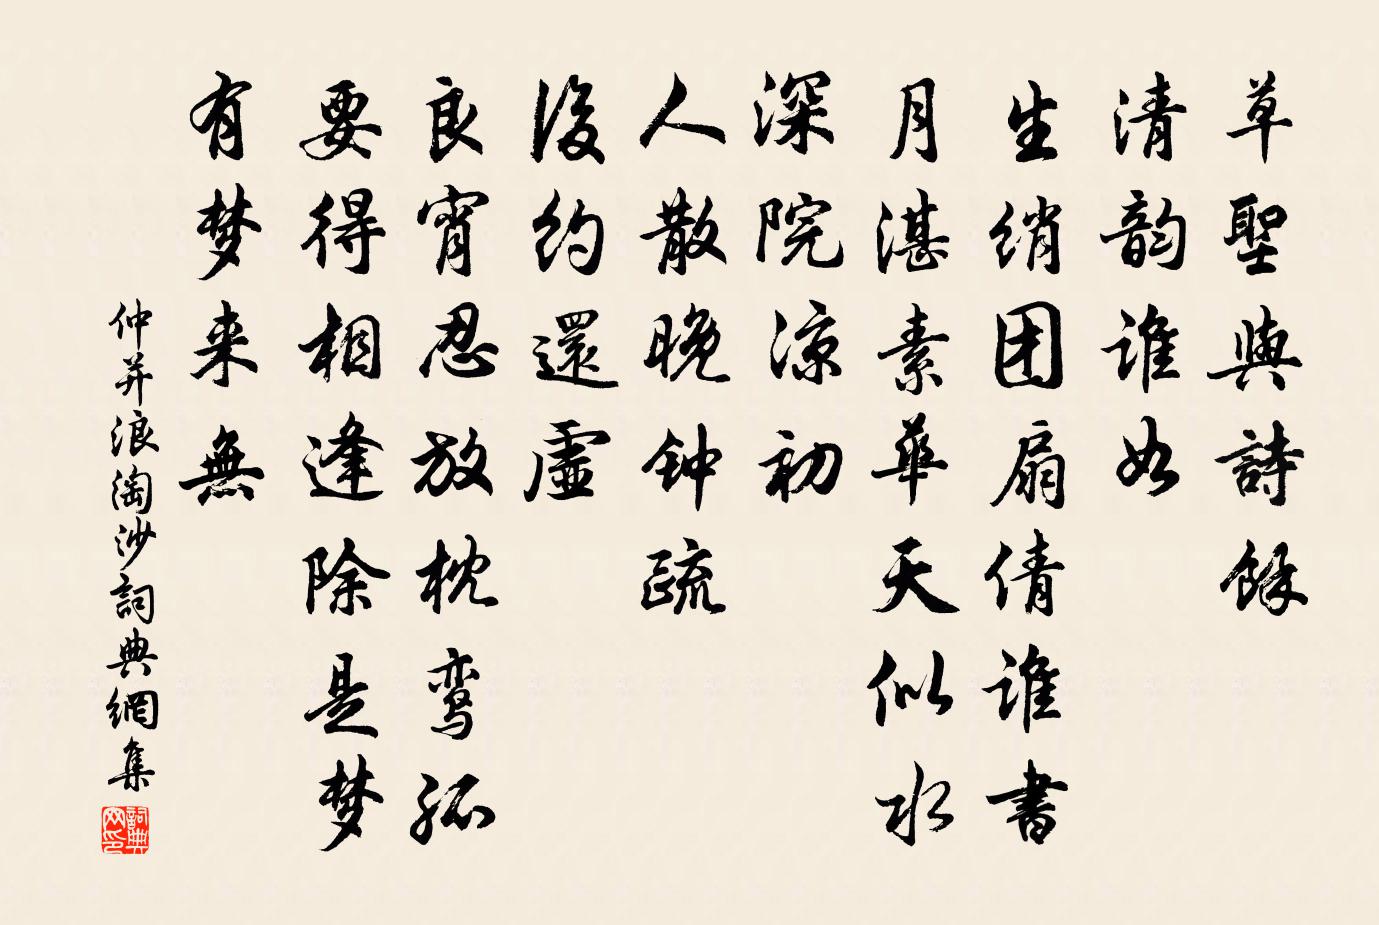 草聖與詩餘
清韵誰如
生绡团扇倩誰書
月湛素華天似水
深院涼初
人散晚钟疏
後約還虛
良宵忍放枕鸾孤
要得相逢除是梦
有梦来無
仲并浪淘沙詞典網集
詞典网印